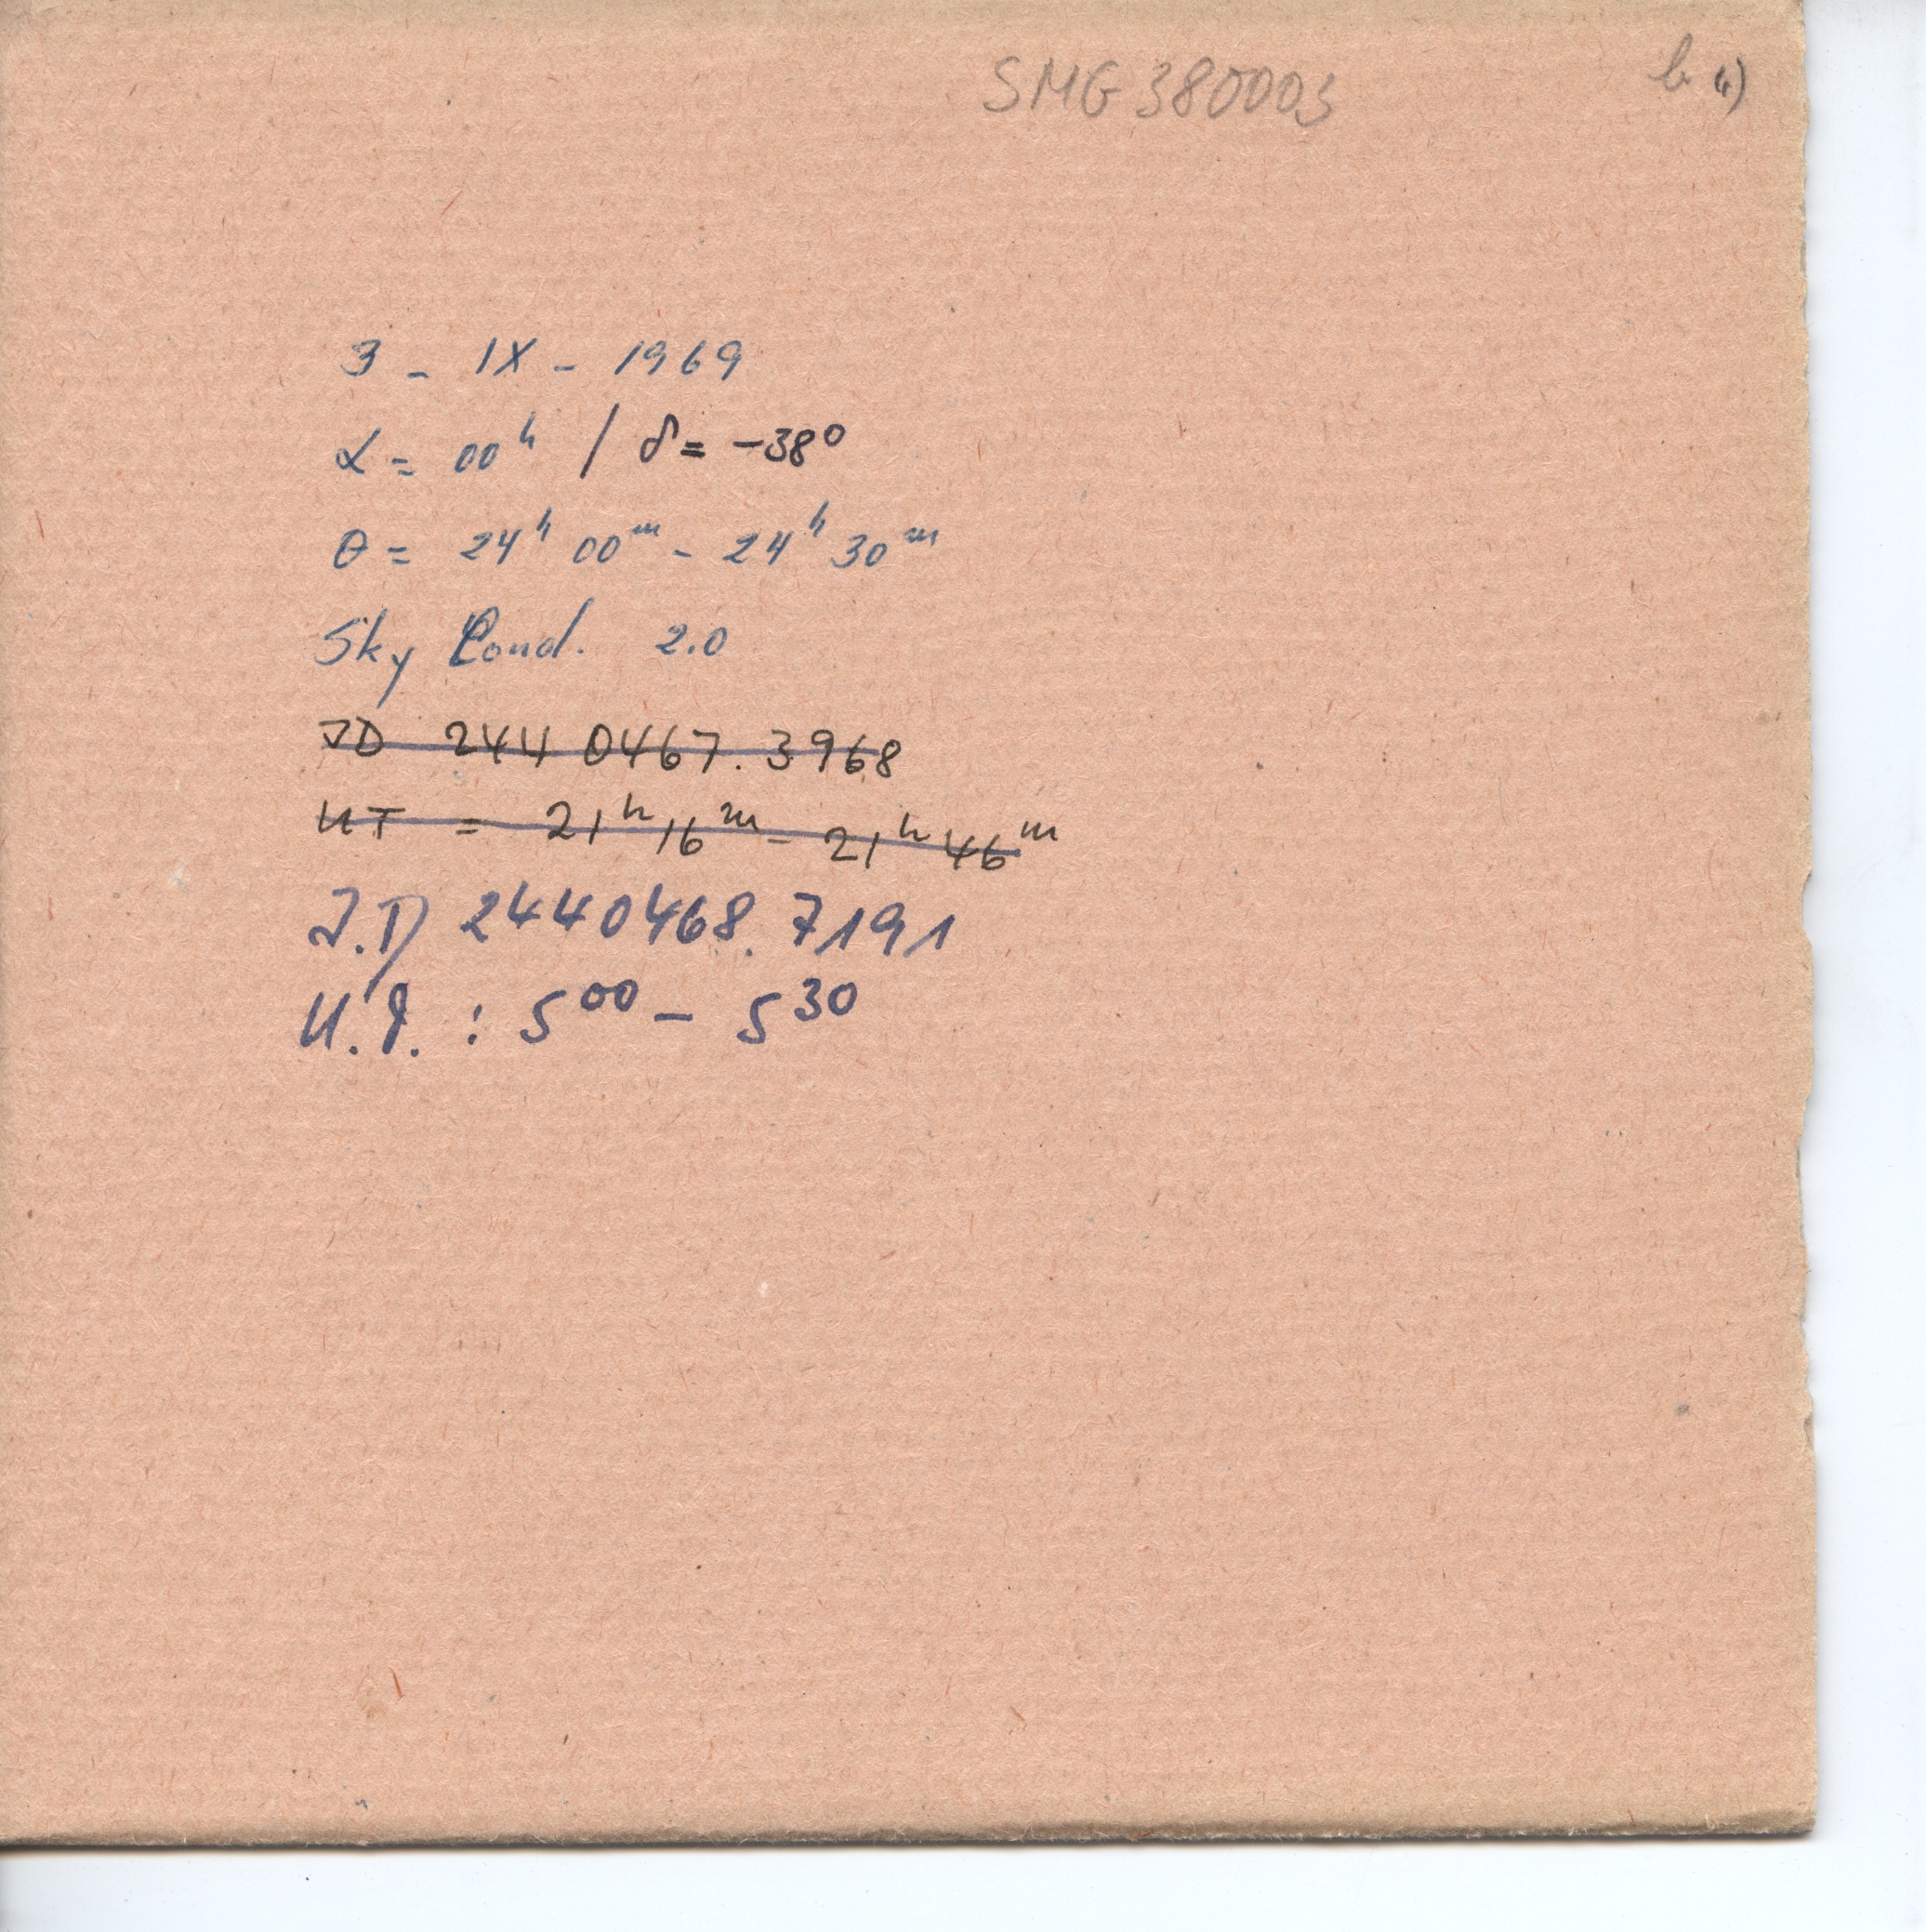 SMG 380003 b 4)
3 - IX - 1969
α = 00ʰ / δ = -38°
θ = 24ʰ 00ᵐ - 24ʰ 30ᵐ
Sky Cond. 2.0
JD 244 0467.3968
UT = 21ʰ 16ᵐ - 21ʰ 46ᵐ
J.D 2440468.7191
U.T. : 5⁰⁰ - 5³⁰